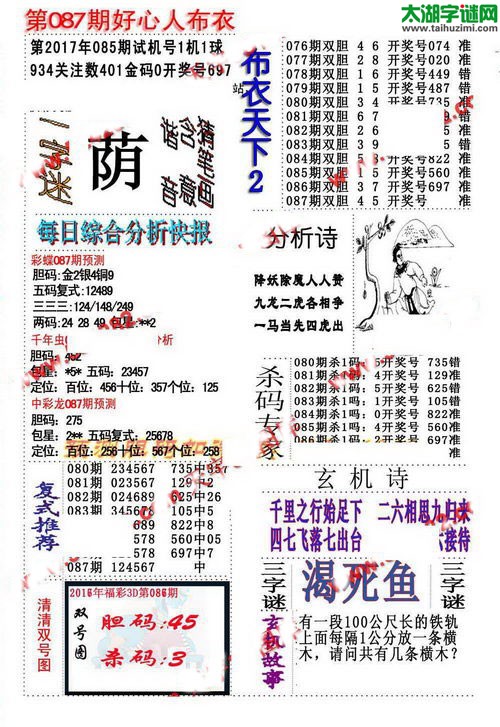 太湖字谜网
http://www.taihuzimi.com
第087期好心人布衣
第2017年085期试机号1机1球
934关注数401金码0开奖号697
一字迷
荫
猜笔画
含意
谐音
每日综合分析快报
彩蝶087期预测
胆码:金2银4铜9
五码复式:12489
三三三:124/148/249
两码:24 28 49 包星:**2
千年虫
胆码:
包星:*5* 五码:23457
定位:百位:456十位:357个位:125
中彩龙087期预测
胆码:275
包星:2** 五码复式:25678
定位:百位:256十位:567个位:258
复式推荐
080期 234567 735中57
081期 023567 129中2
082期 024689 625中26
083期 345678
689 822中8
578 560中05
679 697中
087期 124592 中
清清双号图
2016年福彩3D第086期
双号图
胆码:45
杀码:3
布衣天下2
站
076期双胆 4 6 开奖号074 准
077期双胆 2 8 开奖号020 准
078期双胆 1 7 开奖号449 错
079期双胆 5 1 开奖号487 错
080期双胆 3 4 开奖号735 准
081期双胆 6 7 错
082期双胆 2 9 准
083期双胆 3 1 错
084期双胆 5 开奖号822 准
085期双胆 1 5 开奖号560 准
086期双胆 3 7 开奖号697 准
087期双胆 4 5 开奖号 准
分析诗
降妖除魔人人赞
九龙二虎各相争
一马当先四虎出
杀码专家
080期杀1码: 5开奖号 735错
081期杀1吗: 4开奖号 129准
082期杀1码: 1开奖号 625准
083期杀1吗: 6开奖号 058准
084期杀1码: 0开奖号 822准
085期杀1吗: 4开奖号 560准
086期杀1码: 6开奖号 697错
087期杀1吗: 2开奖号 准
玄机诗
千里之行始足下 二六相思九归来
四七飞落七出台 接待
三字谜
渴死鱼
三字谜
玄机故事
有一段100公尺长的铁轨
上面每隔1公分放一条横
木，请问共有几条横木?